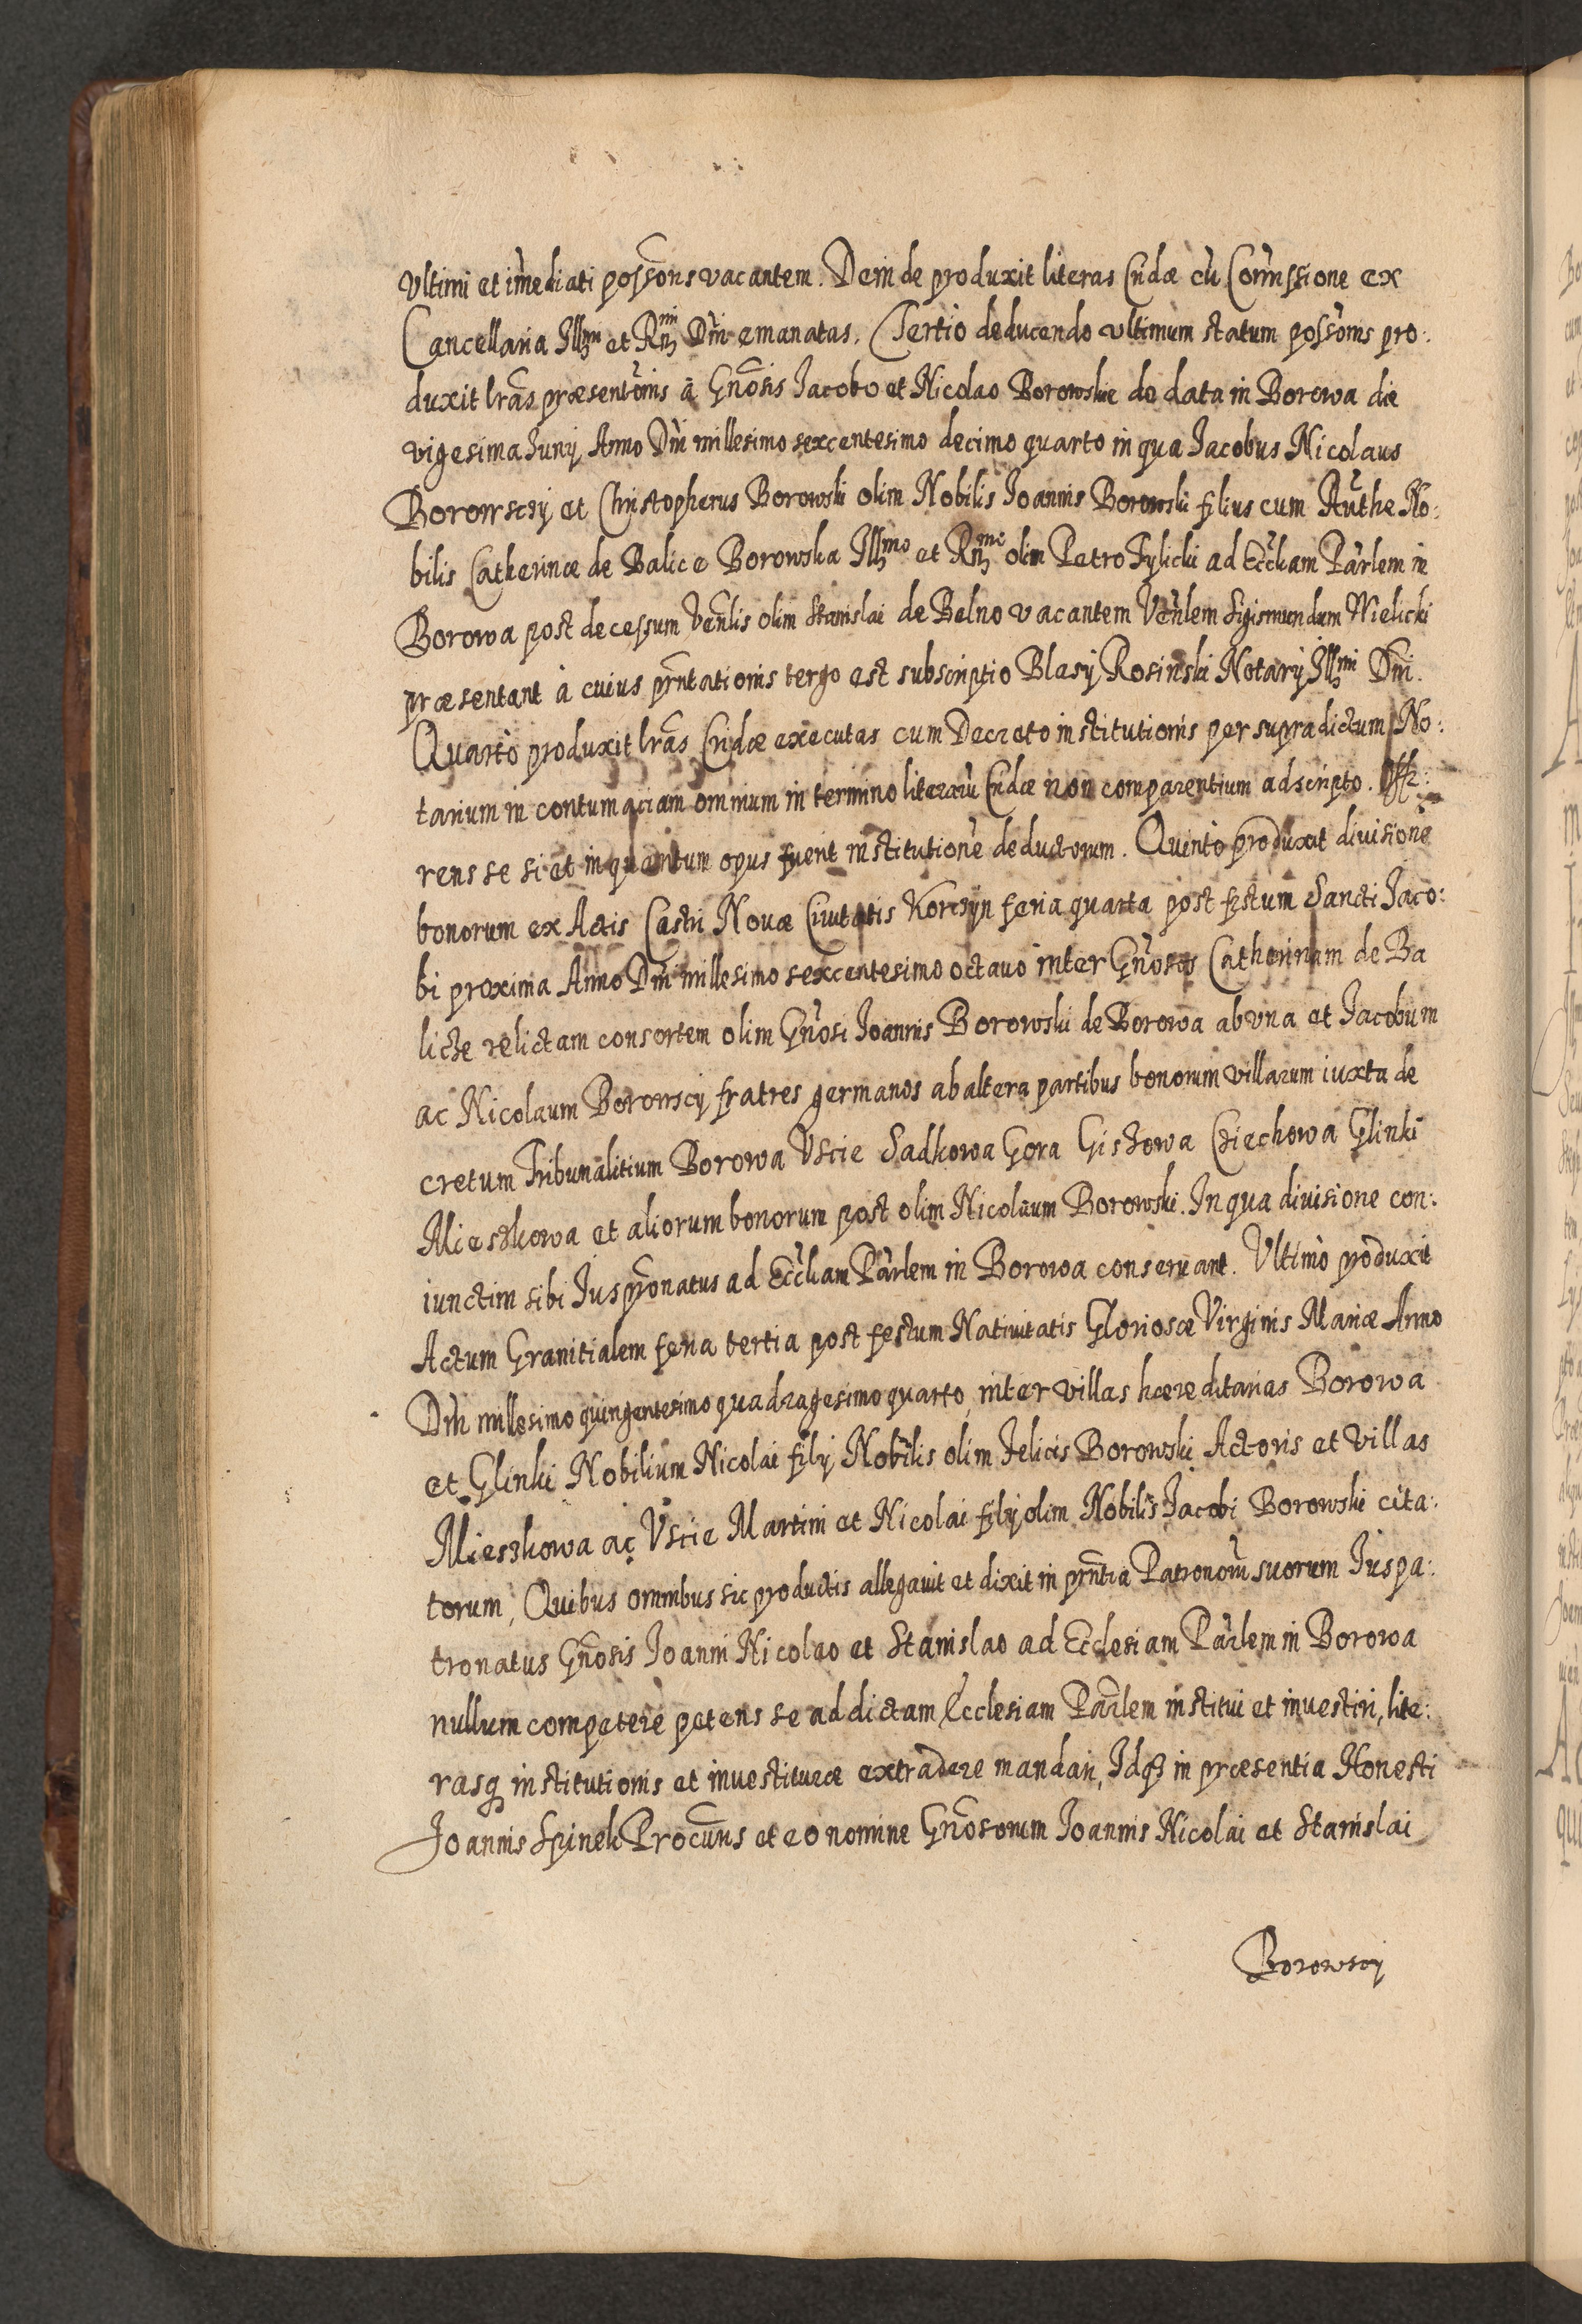 Vltimi et im̄ediati posse͠onis vacantem. Dein de produxit literas Cridæ cū Com̄issione ex
Cancellaria Illmi et Rndmi Dn̄i emanatas. Tertio deducendo vltimum statum possōnis pro:
duxit lrās præsentōnis à Gn̄osis Jacobo et Nicolao Borowskie de data in Borowa die
vigesima Junij Anno Dn̄i millesimo sexcentesimo decimo quarto in qua Jacobus Nicolaus
Borowscij et Christopherus Borowski olim Nobilis Joannis Borowski filius cum Authe No:
bilis Catherinæ de Balice Borowska Illmo et Rndmo olim Petro Tylicki ad Ecc̄liam Pārlem in
Borowa post decessum Ven̄lis olim Stanislai de Belno vacantem Ven̄lem Sigismundum Wielicki
præsentant à cuius prn̄tationis tergo est subscriptio Blasij Rosinski Notarij Illmi Dn̄i.
Quarto produxit lrās Cridæ executas cum Decreto institutionis per supradictum No:
tarium in contumaciam omnium in termino literarū Cridæ non comparentium adscripto. Offe:
rens se si et in quantum opus fuerit institutionē deductorum. Quinto produxit divisionē
bonorum ex Actis Castri Nouæ Ciuitatis Korczyn feria quarta post festum Sancti Jaco:
bi proxima Anno Dn̄i millesimo sexcentesimo octauo inter Gn̄osos Catherinam de Ba
licze relictam consortem olim Gn̄osi Joannis Borowski de Borowa ab vna et Jacobum
ac Nicolaum Borowscij fratres germanos ab altera partibus bonorum villarum iuxta de
cretum Tribunalitium Borowa Vscie Sadkowa Gora Giszowa Cziechowa Glinki
Mieszkowa et aliorum bonorum post olim Nicolaum Borowski. In qua divisione con:
iunctim sibi Jus pr̄onatus ad Ecc̄liam Pārlem in Borowa conseruant. Vltimò produxit
Actum Granitialem feria tertia post festum Natiuitatis Gloriosæ Virginis Mariæ Anno
Dn̄i millesimo quingentesimo quadragesimo quarto, inter villas hæreditarias Borowa
et Glinki Nobilium Nicolai filij Nobilis olim Felicis Borowski Actoris et villas
Mieszkowa ac Vscie Martini et Nicolai filij olim Nobilis Jacobi Borowski cita:
torum, Quibus omnibus sic productis allegauit et dixit in prn̄tia Patronorū suorum Juspa:
tronatus Gn̄osis Joanni Nicolao et Stanislao ad Ecclesiam Pārlem in Borowa
nullum competere petens se ad dictam Ecclesiam Pārlem institui et investiri, lite:
rasq₃ institutionis et inuestituræ extradere mandari, Idq₃ in præsentia Honesti
Joannis Spinek Procūris et eo nomine Gn̄osorum Joannis Nicolai et Stanislai
Borowscij